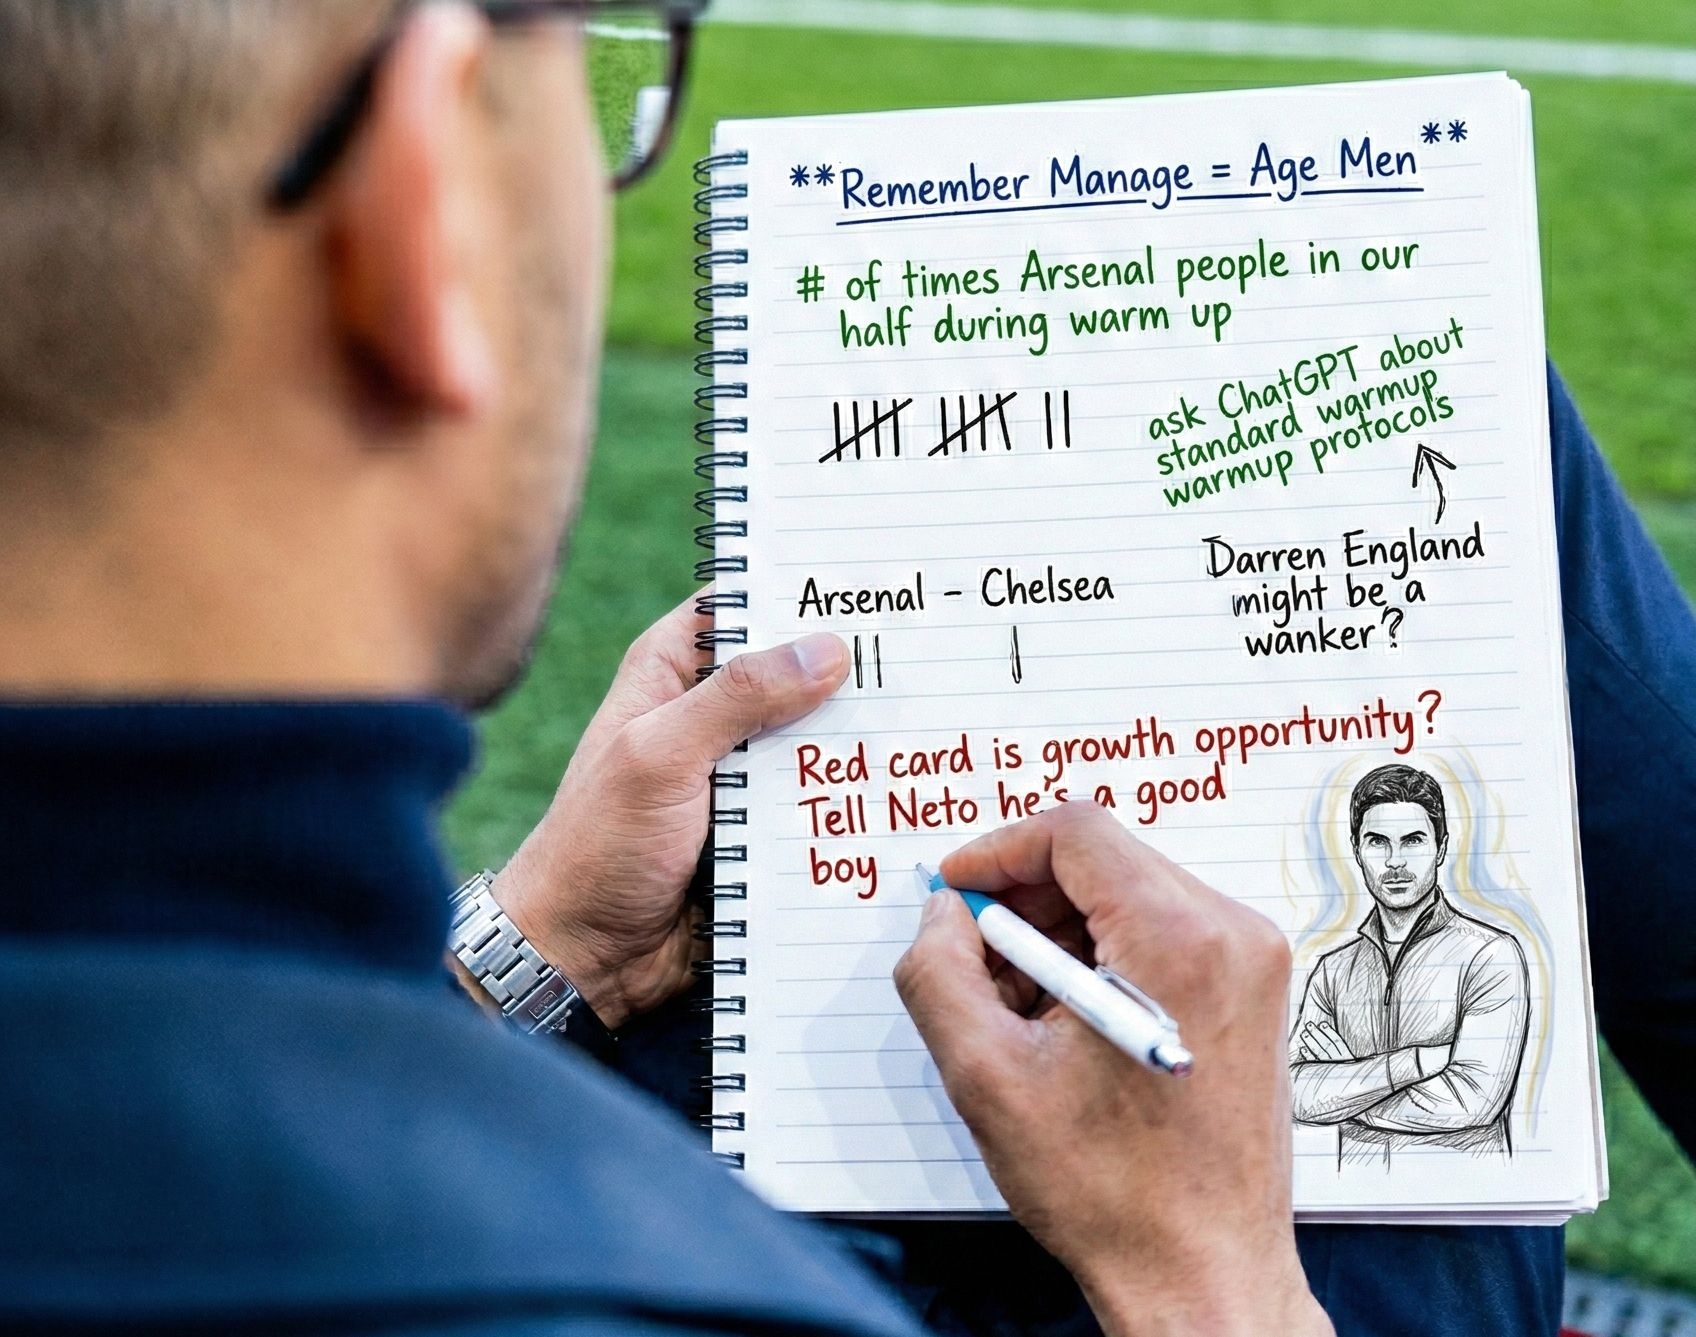 **Remember Manage = Age Men**
# of times Arsenal people in our
half during warm up
ask ChatGPT about
standard warmup
warmup protocols
Darren England
might be a
wanker?
Arsenal - Chelsea
Red card is growth opportunity?
Tell Neto he's a good
boy